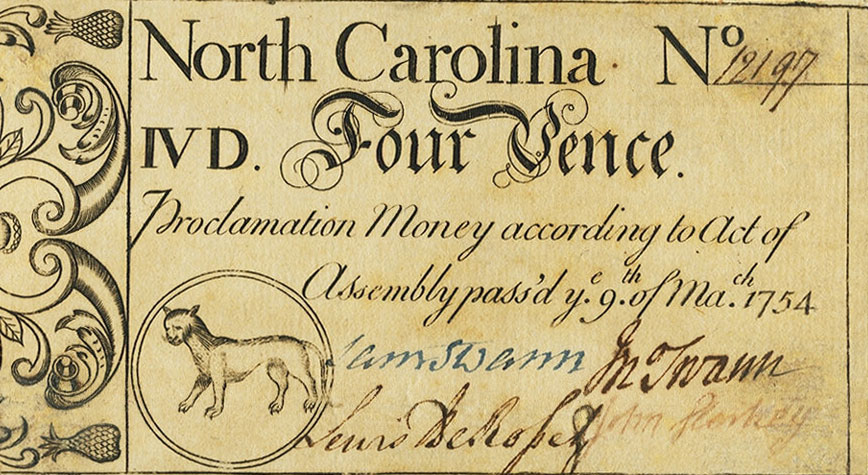 North Carolina. No 12197
IVD. Four Pence.
Proclamation Money according to Act of
Assembly pass'd ye. 9.th of Ma.ch 1754
Sam Swann Jno Swann
Lewis DeRosset John Starkey